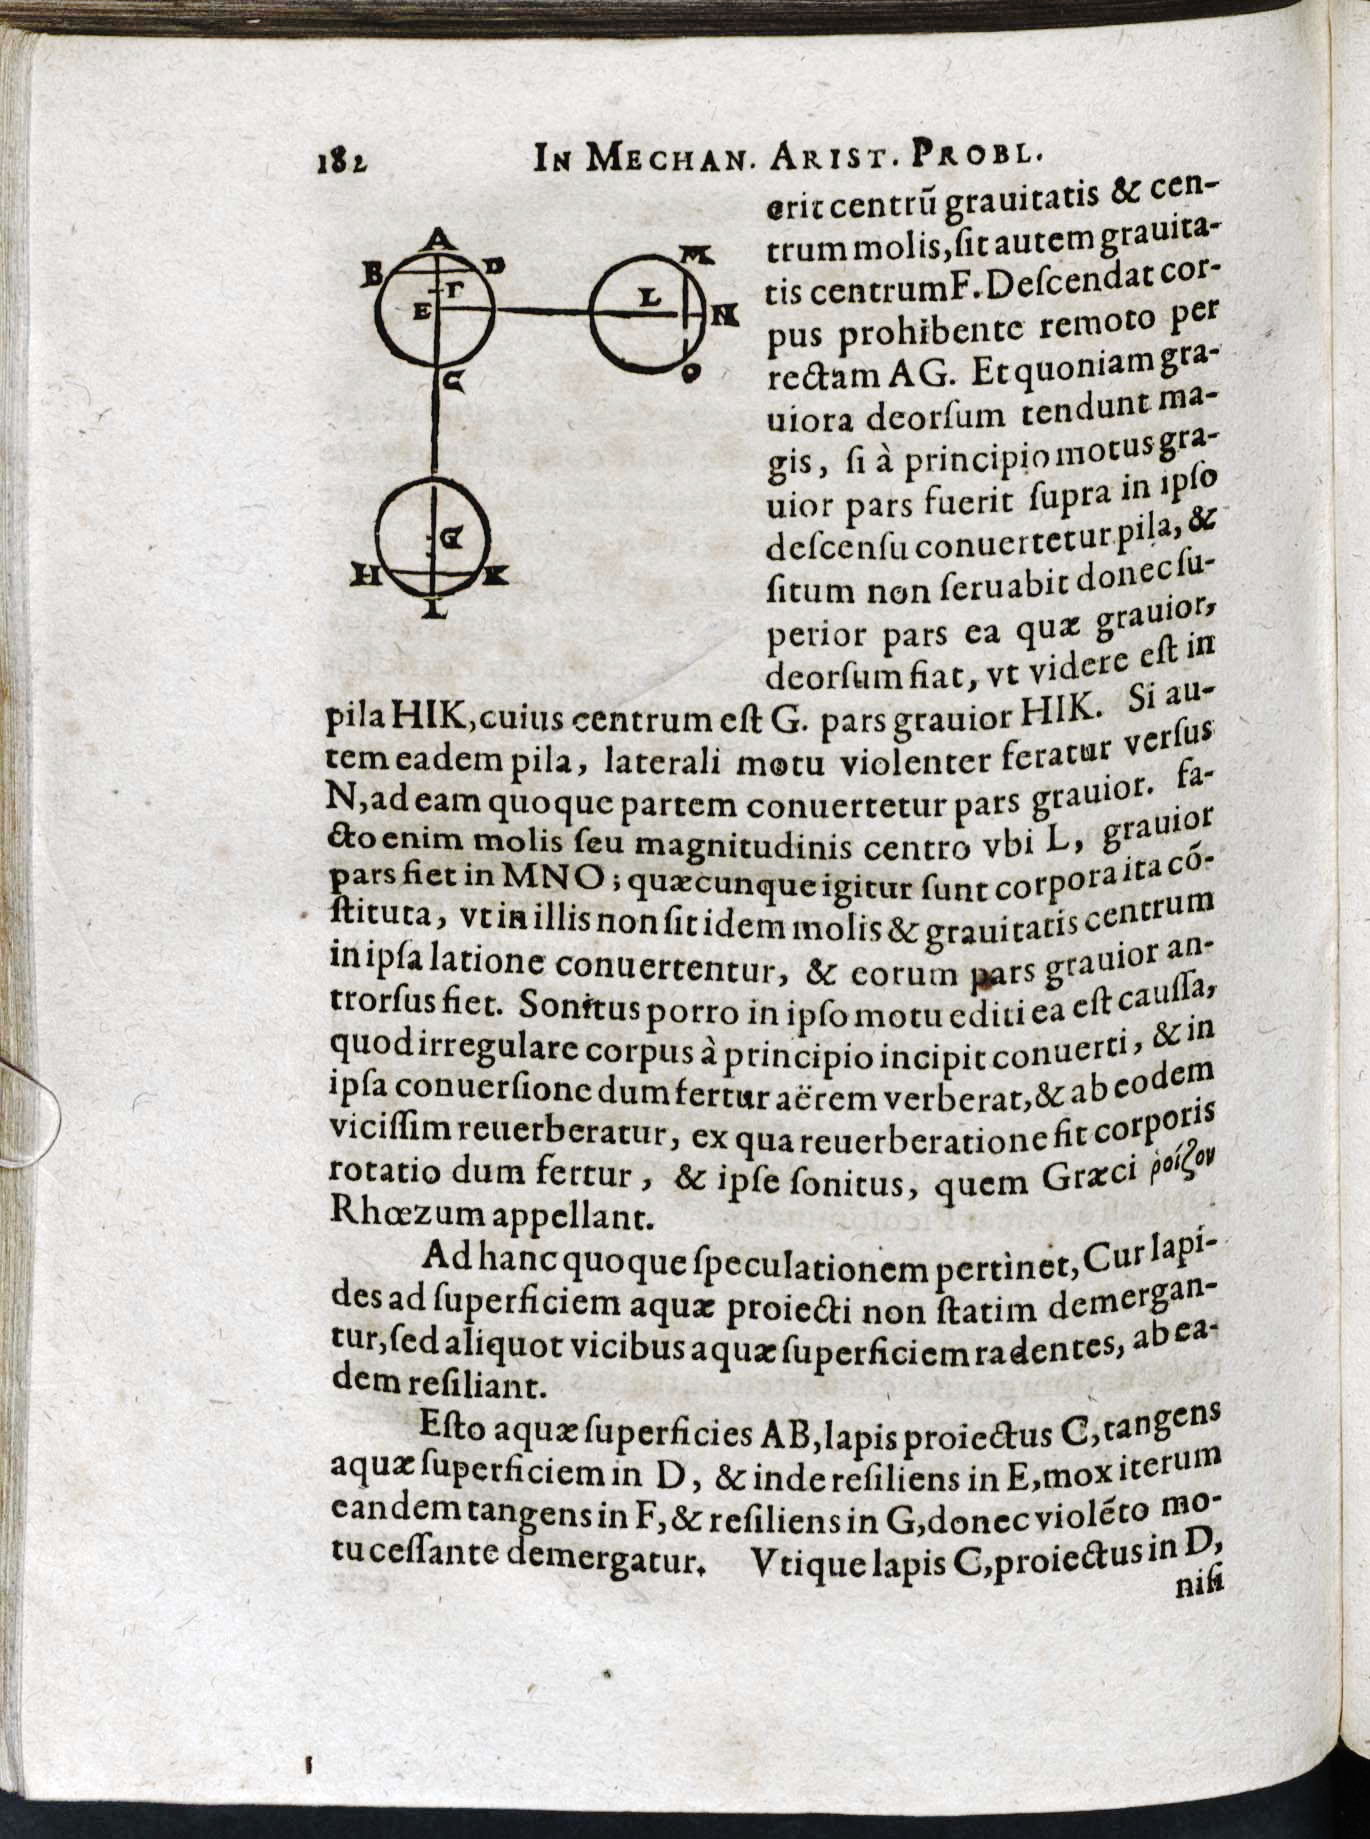 182 IN MECHAN. ARIST. PROBL.
A
B D
F
E
C
M
L
N
O
G
H K
I
erit centrū grauitatis & cen-
trum molis, ſit autem grauita-
tis centrum F. Deſcendat cor-
pus prohibente remoto per
rectam AG. Et quoniam gra-
uiora deorſum tendunt ma-
gis, ſi à principio motus gra-
uior pars fuerit ſupra in ipſo
deſcenſu conuertetur pila, &
ſitum non ſeruabit donec ſu-
perior pars ea quæ grauior,
deorſum fiat, vt videre eſt in
pila HIK, cuius centrum eſt G. pars grauior HIK. Si au-
tem eadem pila, laterali motu violenter feratur verſus
N, ad eam quoque partem conuertetur pars grauior. fa-
cto enim molis ſeu magnitudinis centro vbi L, grauior
pars fiet in MNO; quæcunque igitur ſunt corpora ita cō-
ſtituta, vt in illis non ſit idem molis & grauitatis centrum
in ipſa latione conuertentur, & eorum pars grauior an-
trorſus fiet. Sonitus porro in ipſo motu editi ea eſt cauſſa,
quod irregulare corpus à principio incipit conuerti, & in
ipſa conuerſione dum fertur aërem verberat, & ab eodem
viciſſim reuerberatur, ex qua reuerberatione fit corporis
rotatio dum fertur, & ipſe ſonitus, quem Græci ῥοίζον
Rhœzum appellant.
Ad hanc quoque ſpeculationem pertinet, Cur lapi-
des ad ſuperficiem aquæ proiecti non ſtatim demergan-
tur, ſed aliquot vicibus aquæ ſuperficiem radentes, ab ea-
dem reſiliant.
Eſto aquæ ſuperficies AB, lapis proiectus C, tangens
aquæ ſuperficiem in D, & inde reſiliens in E, mox iterum
eandem tangens in F, & reſiliens in G, donec violēto mo-
tu ceſſante demergatur. Vtique lapis C, proiectus in D,
niſi